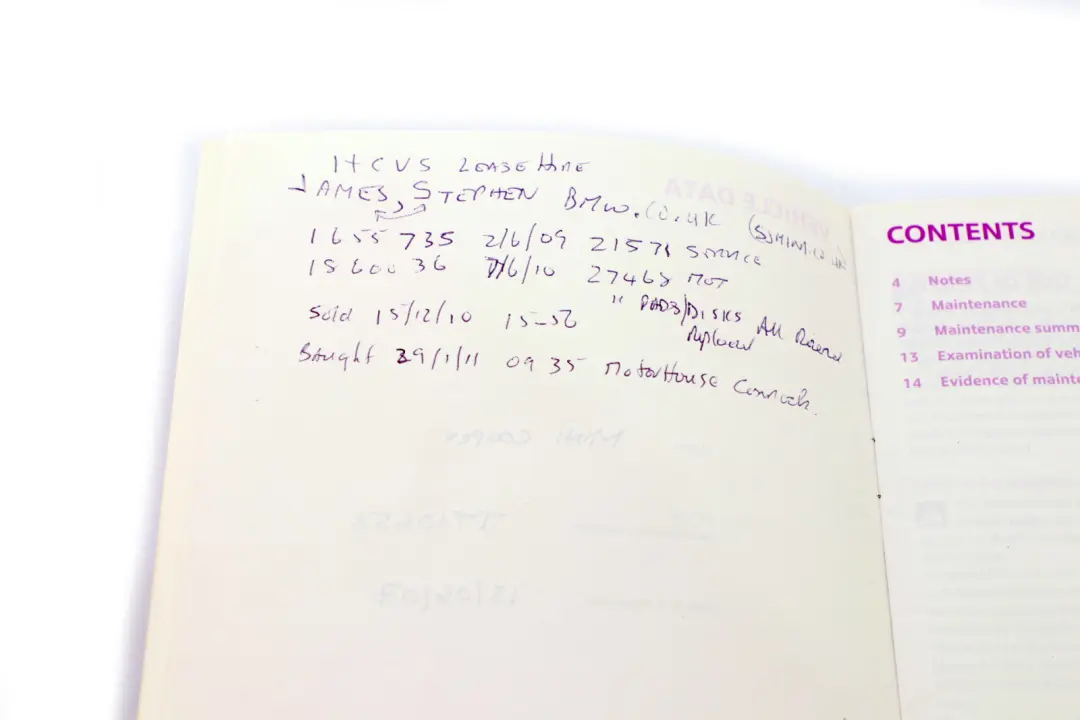 LEASE HIRE
JAMES, STEPHEN BMW.co.uk
1655 735 2/6/09 21571 SERVICE
36 7/6/10 27468 MOT
" PADS/DISKS All
Replaced
Sold 15/12/10 15-56
Bought 29/1/11 09 35 MotorHouse Cannock.
VEHICLE DATA
MINI COOPER
CONTENTS
4 Notes
7 Maintenance
9 Maintenance summ
13 Examination of veh
14 Evidence of mainte